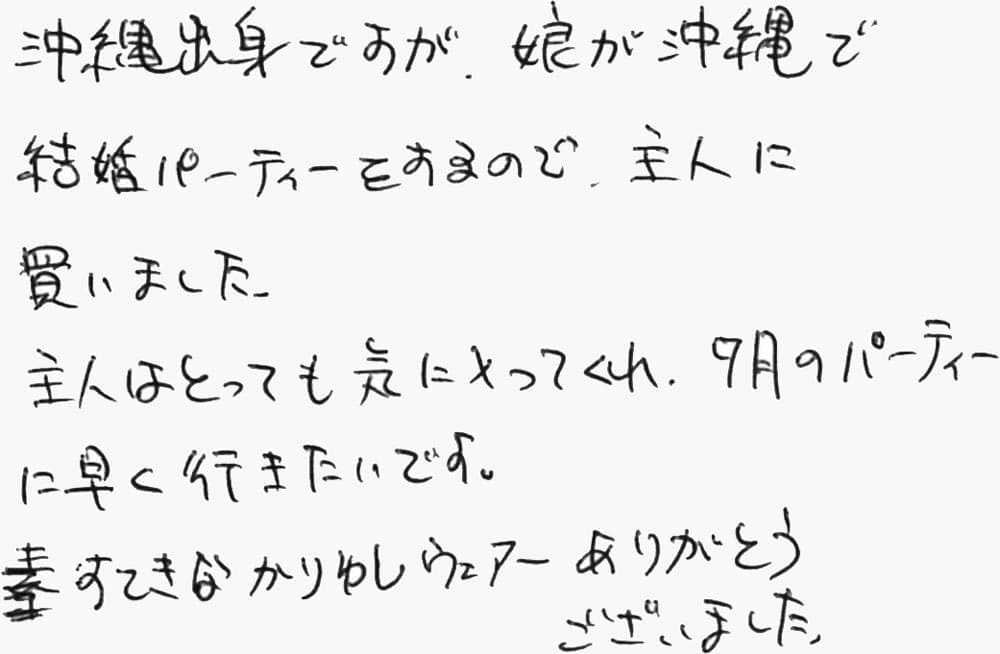 沖縄出身ですが、娘が沖縄で
結婚パーティーをするので、主人に
買いました。
主人はとっても気に入ってくれ、9月のパーティー
に早く行きたいです。
すてきなかりゆしウェアー ありがとう
ございました。